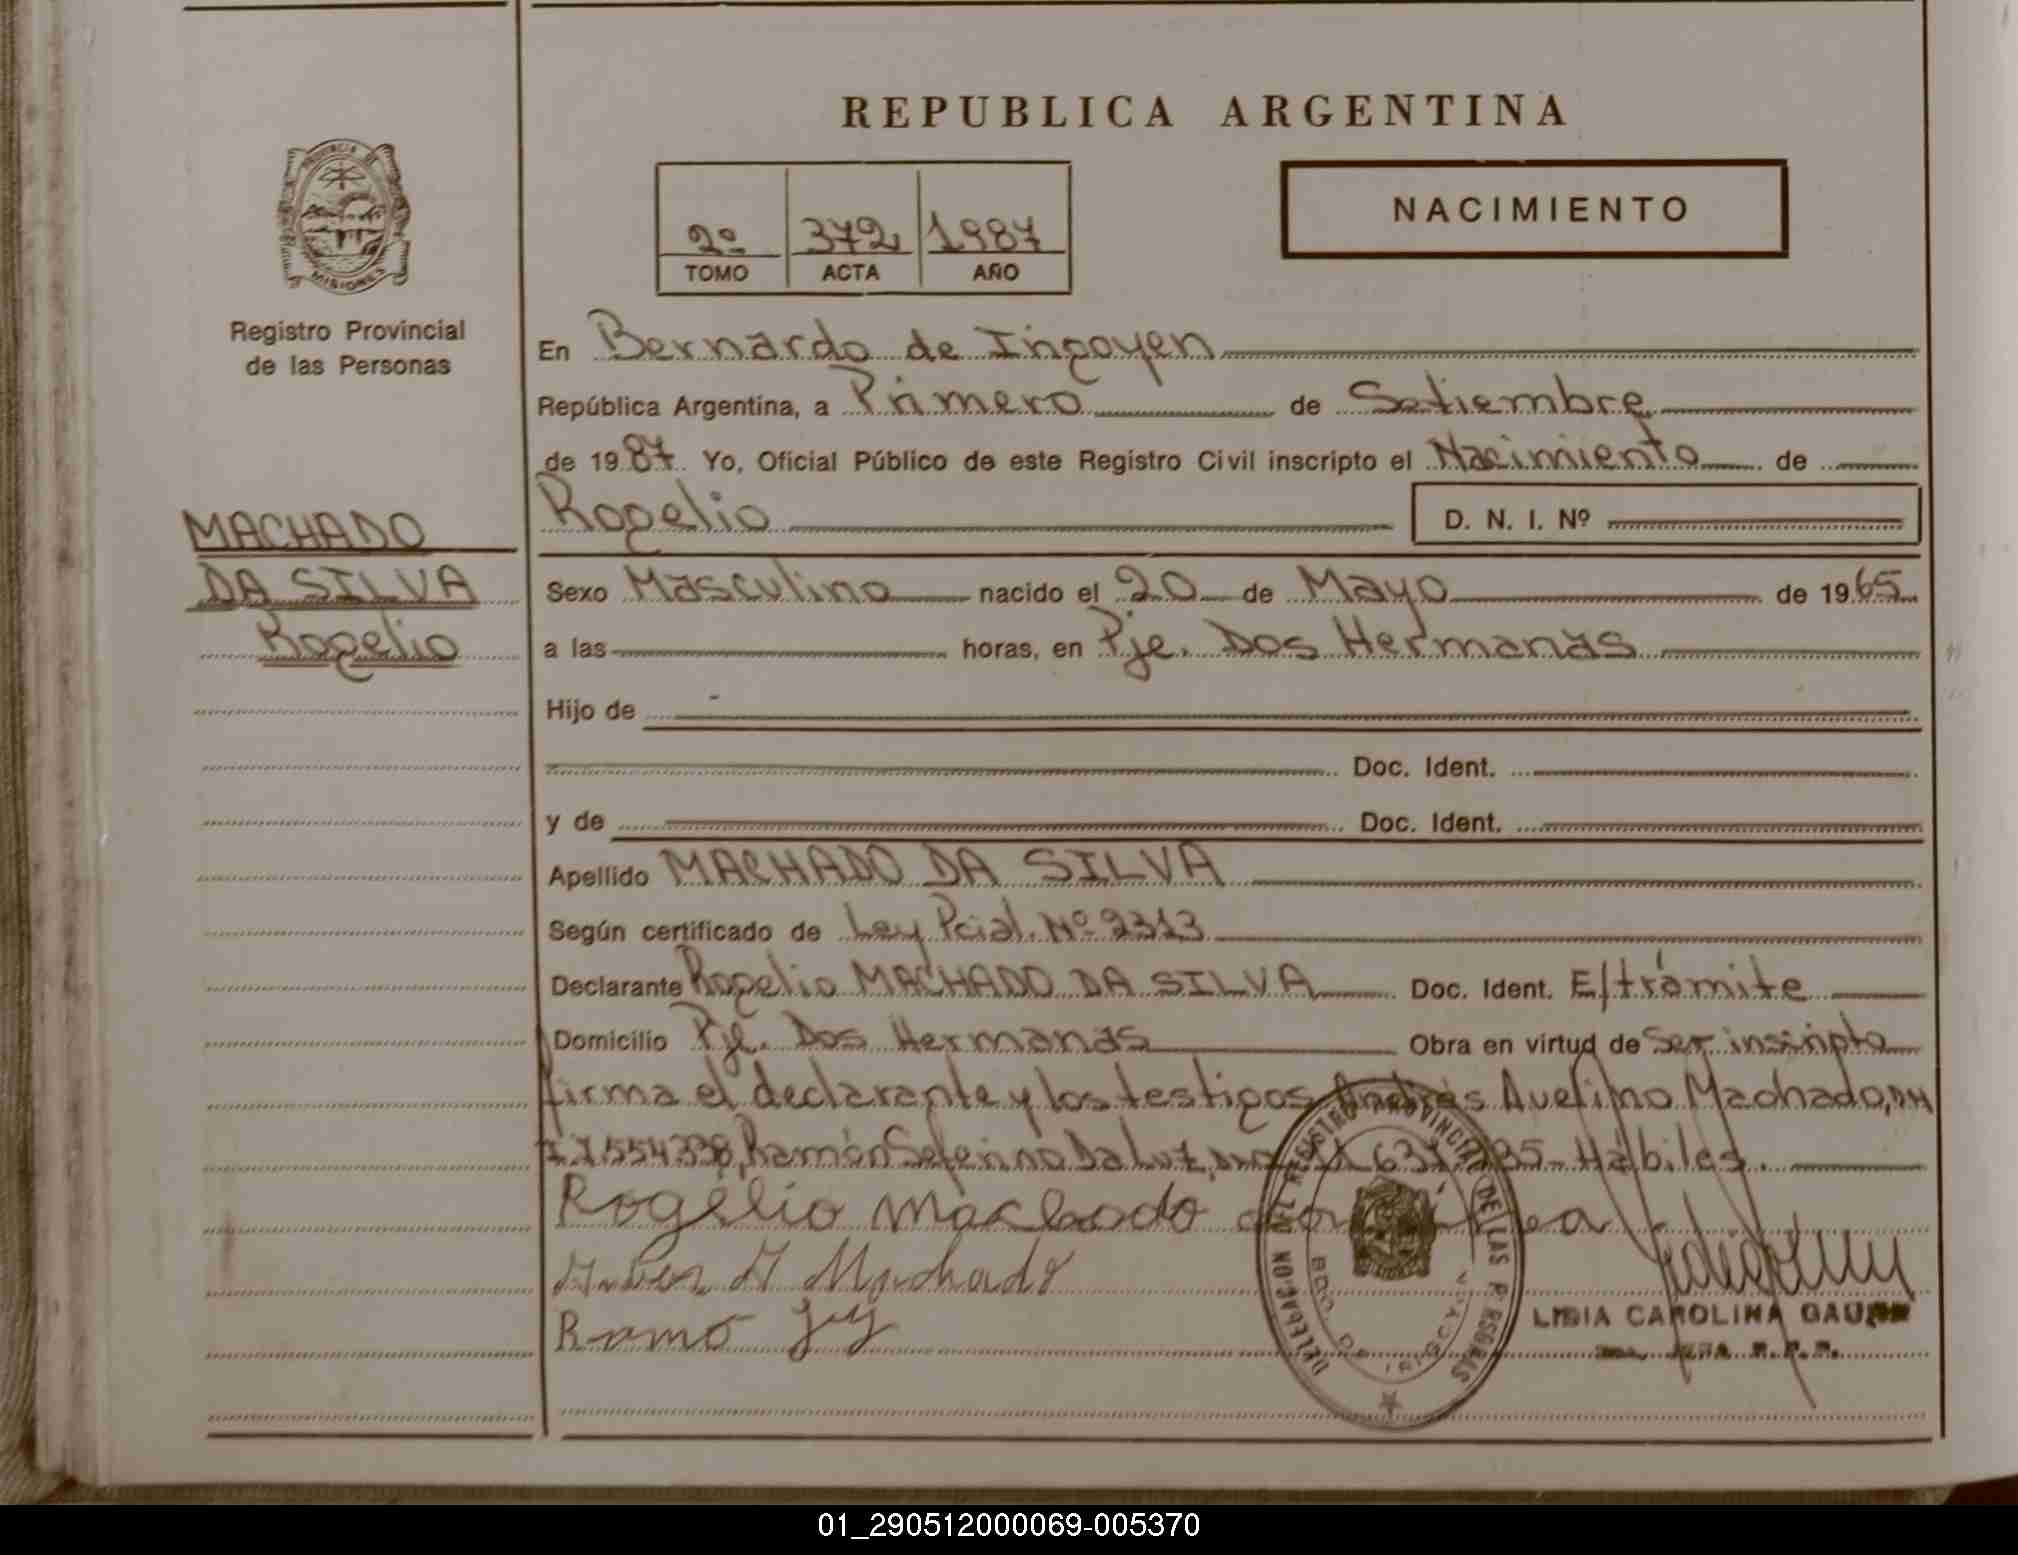 REPUBLICA ARGENTINA
PROVINCIA DE MISIONES
Registro Provincial
de las Personas
NACIMIENTO
2º 372 1987
TOMO ACTA AÑO
En Bernardo de Irigoyen
República Argentina, a Primero de Setiembre
de 1987. Yo, Oficial Público de este Registro Civil inscripto el Nacimiento de
Rogelio D. N. I. Nº
MACHADO
DA SILVA
Rogelio
Sexo Masculino nacido el 20 de Mayo de 1965
a las horas, en Pje. Dos Hermanas
Hijo de
Doc. Ident.
y de Doc. Ident.
Apellido MACHADO DA SILVA
Según certificado de Ley Pcial. Nº 2313
Declarante Rogelio MACHADO DA SILVA Doc. Ident. E/trámite
Domicilio Pje. Dos Hermanas Obra en virtud de ser inscripto
firma el declarante y los testigos Andrés Avelino Machado,
7.554.338, Ramón Seferino Da Luz, Hábiles.
Rogelio Machado
Machado
Ramo
DELEGACION DEL REGISTRO PROVINCIAL DE LAS PERSONAS
BDO. DE IRIGOYEN
LIDIA CAROLINA
01_290512000069-005370